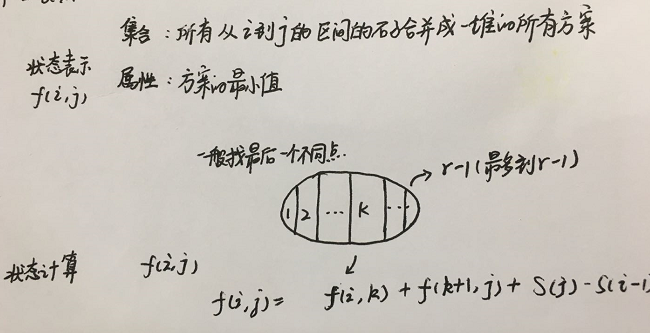 集合：所有从i到j的区间的石子合并成一堆的所有方案
状态表示
f(i,j)
属性：方案的最小值
一般找最后一个不同点.
r-1(最多到r-1)
1 2 ... k ...
状态计算 f(i,j)
f(i,j)= f(i,k) + f(k+1,j) + S(j) - S(i-1)